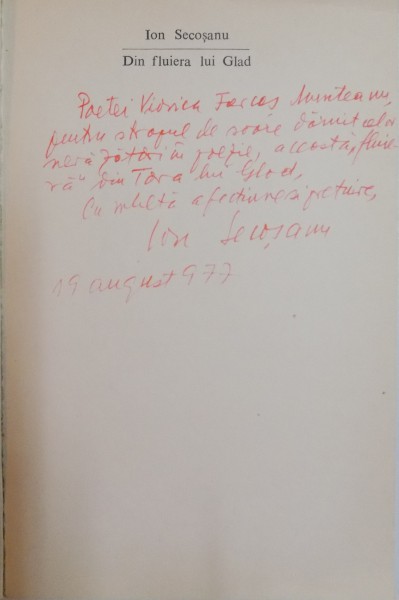 Ion Secoșanu
Din fluiera lui Glad
Poetei Viorica Farcaș Munteanu,
pentru stropul de soare dăruit celor
în poezie, această „fluie-
ră" din Țara lui Glad,
Cu multă afecțiune și prețuire,
Ion Secoșanu
19 august 977